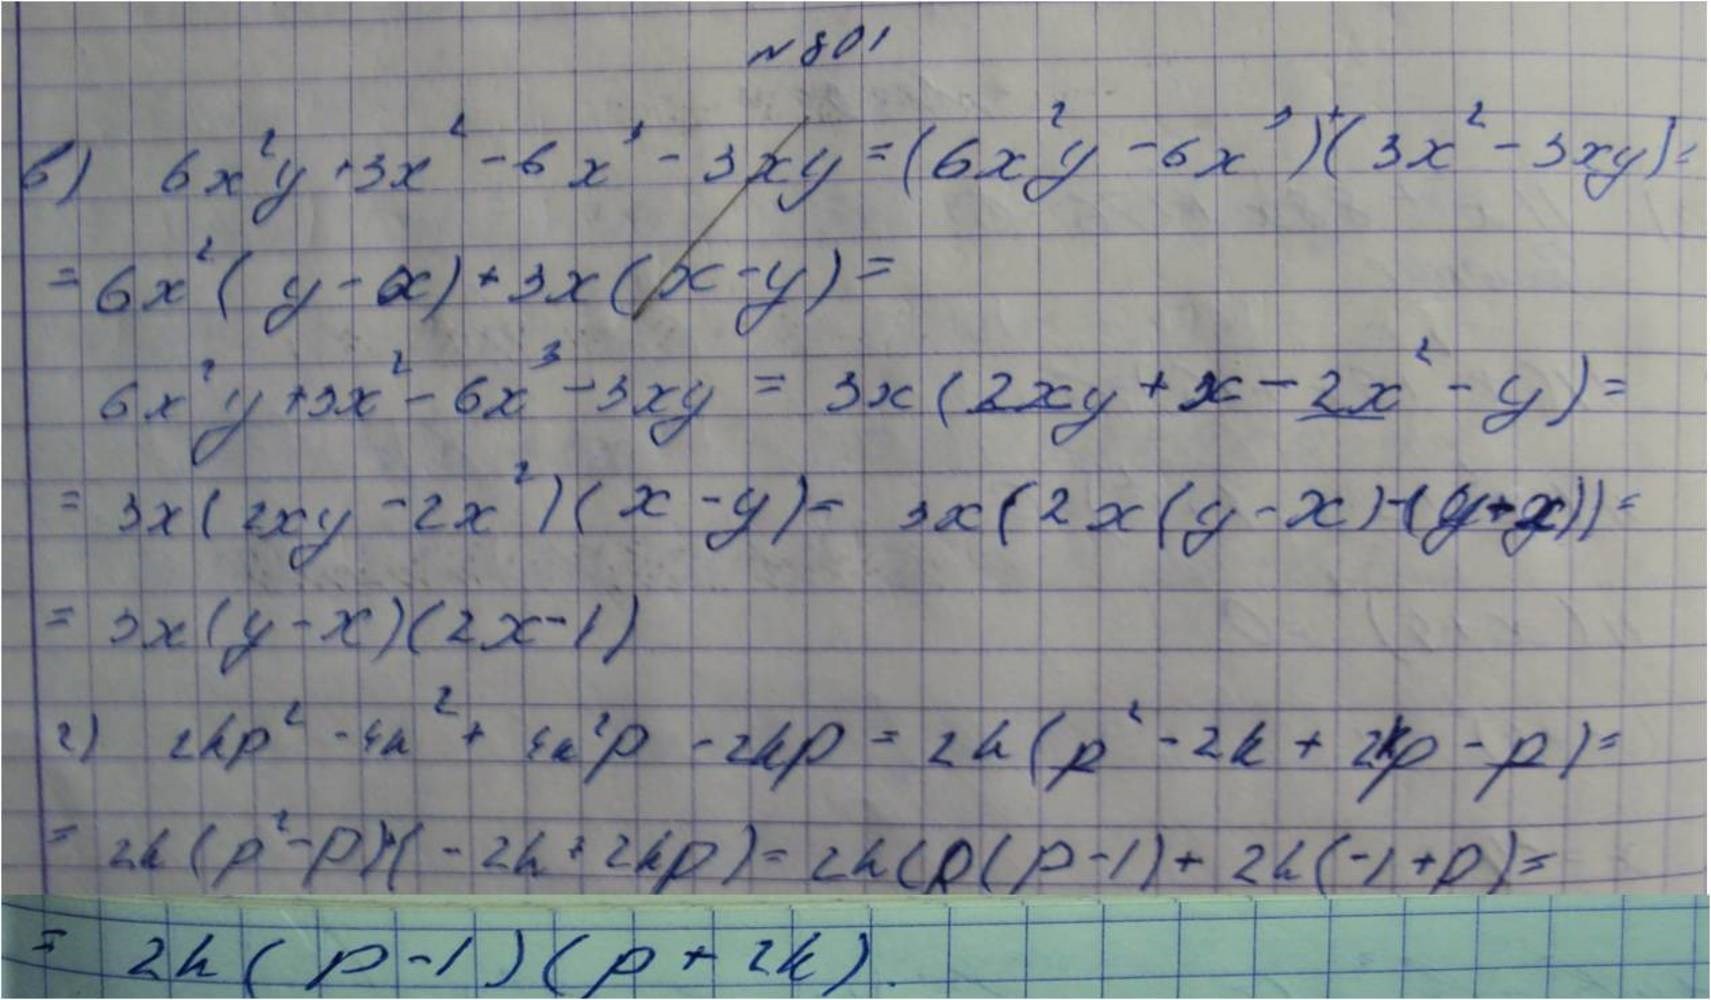 №801
в) 6x²y+3x²-6x³-3xy=(6x²y-6x³)+(3x²-3xy)=
=6x²(y-x)+3x(x-y)=
6x²y+3x²-6x³-3xy=3x(2xy+x-2x²-y)=
=3x(2xy-2x²)(x-y)=3x(2x(y-x)-(y+x))=
=3x(y-x)(2x-1)
г) 2kp²-4k²+4k²p-2kp=2k(p²-2k+2kp-p)=
=2k(p²-p)+(-2k+2kp)=2k(p(p-1)+2k(-1+p)=
=2k(p-1)(p+2k).